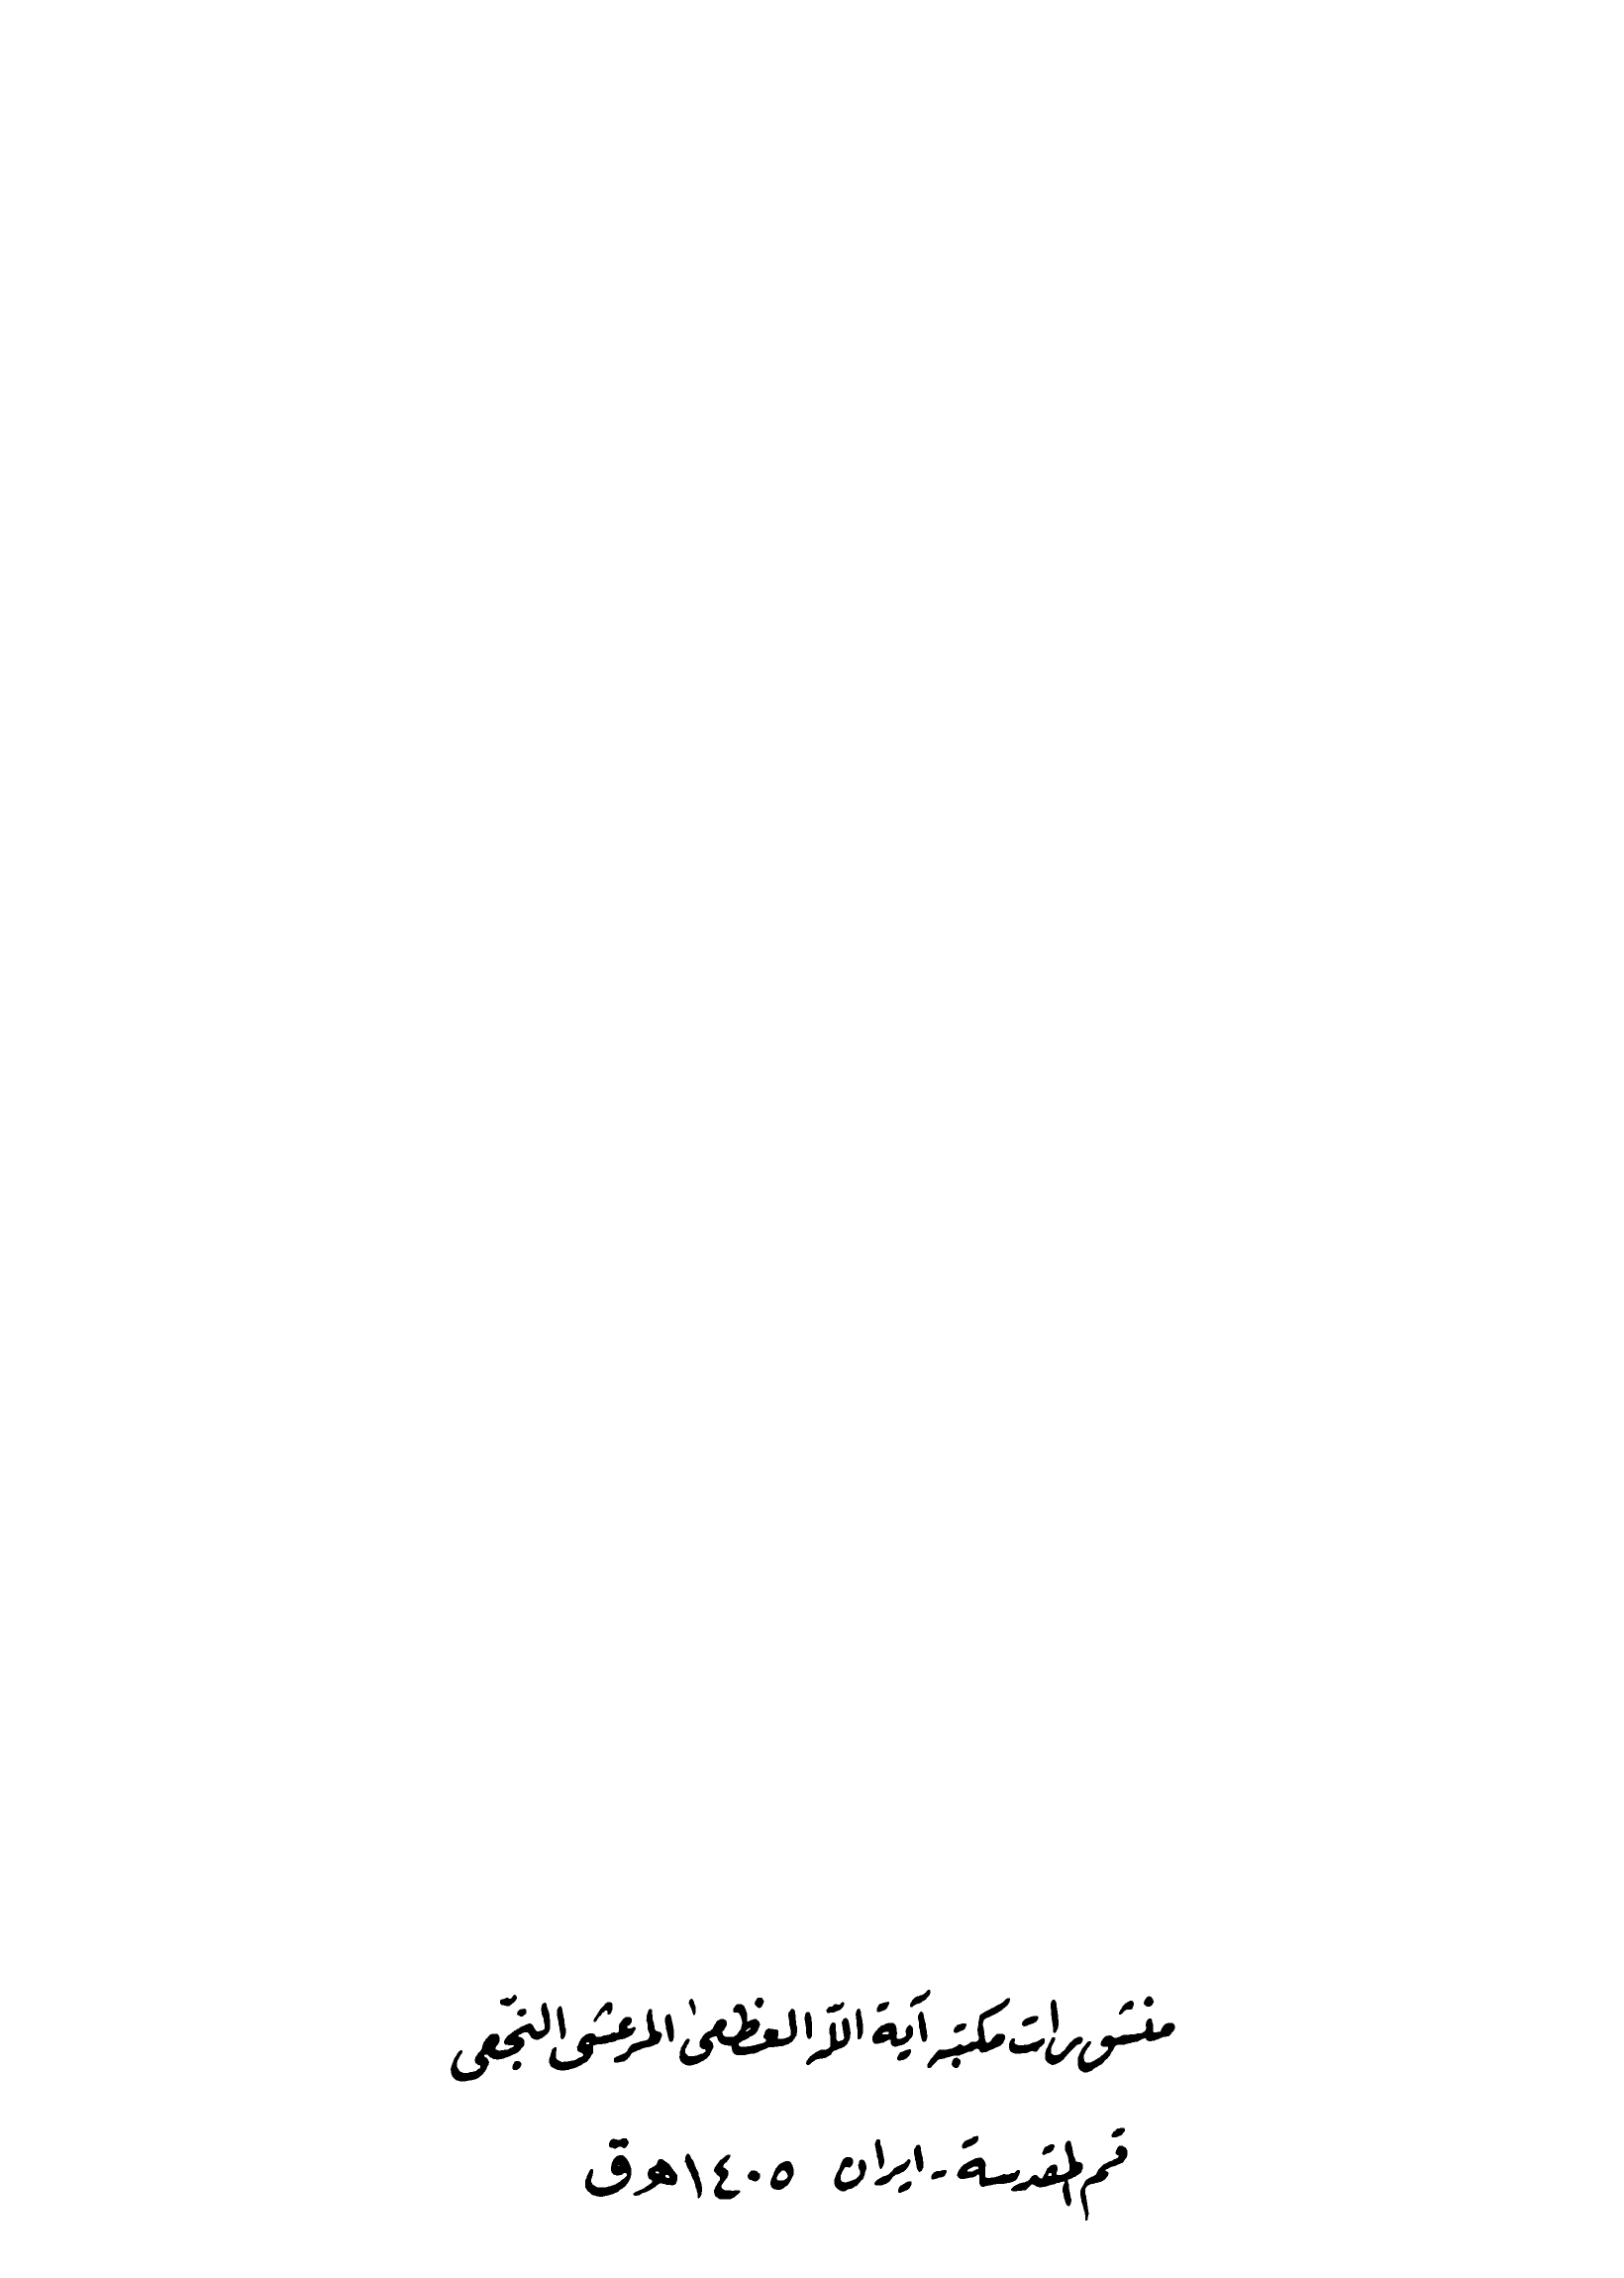 منشورات مكتبة آية الله العظمى المرعشي النجفي
قم المقدسة - ايران ١٤٠٥ هـ ق